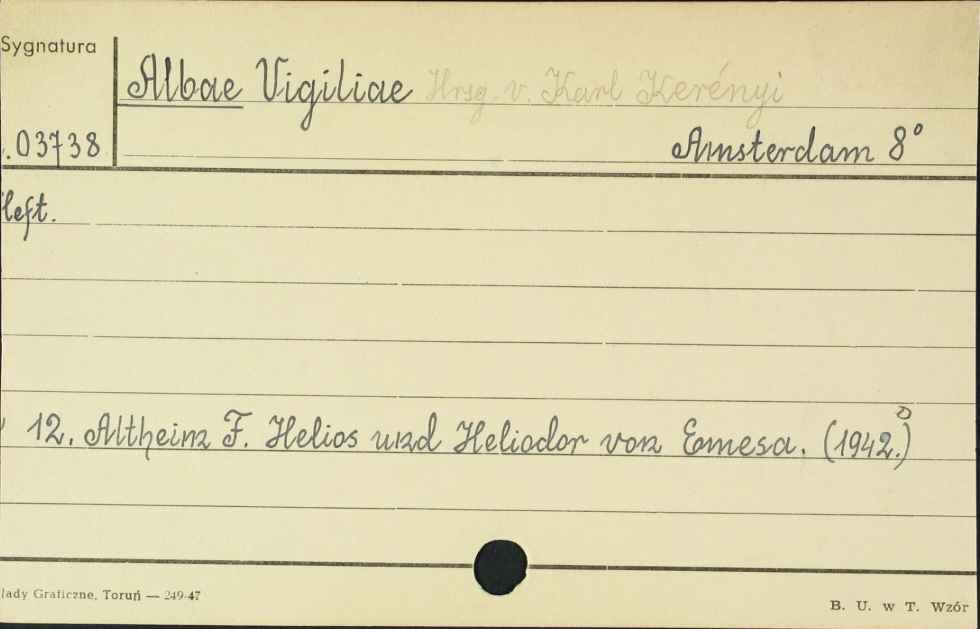 Sygnatura
Albae Vigiliae Hrsg. v. Karl Kerényi
.03738
Amsterdam 8°
Heft.
12. Altheim F. Helios und Heliodor von Emesa. (1942.)
lady Graficzne, Toruń — 249-47
B. U. w T. Wzór